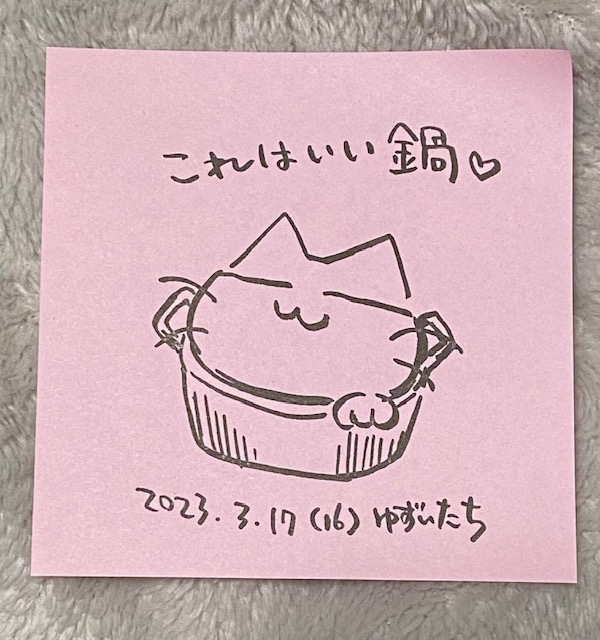 これはいい鍋♡
2023.3.17(16) ゆずいたち